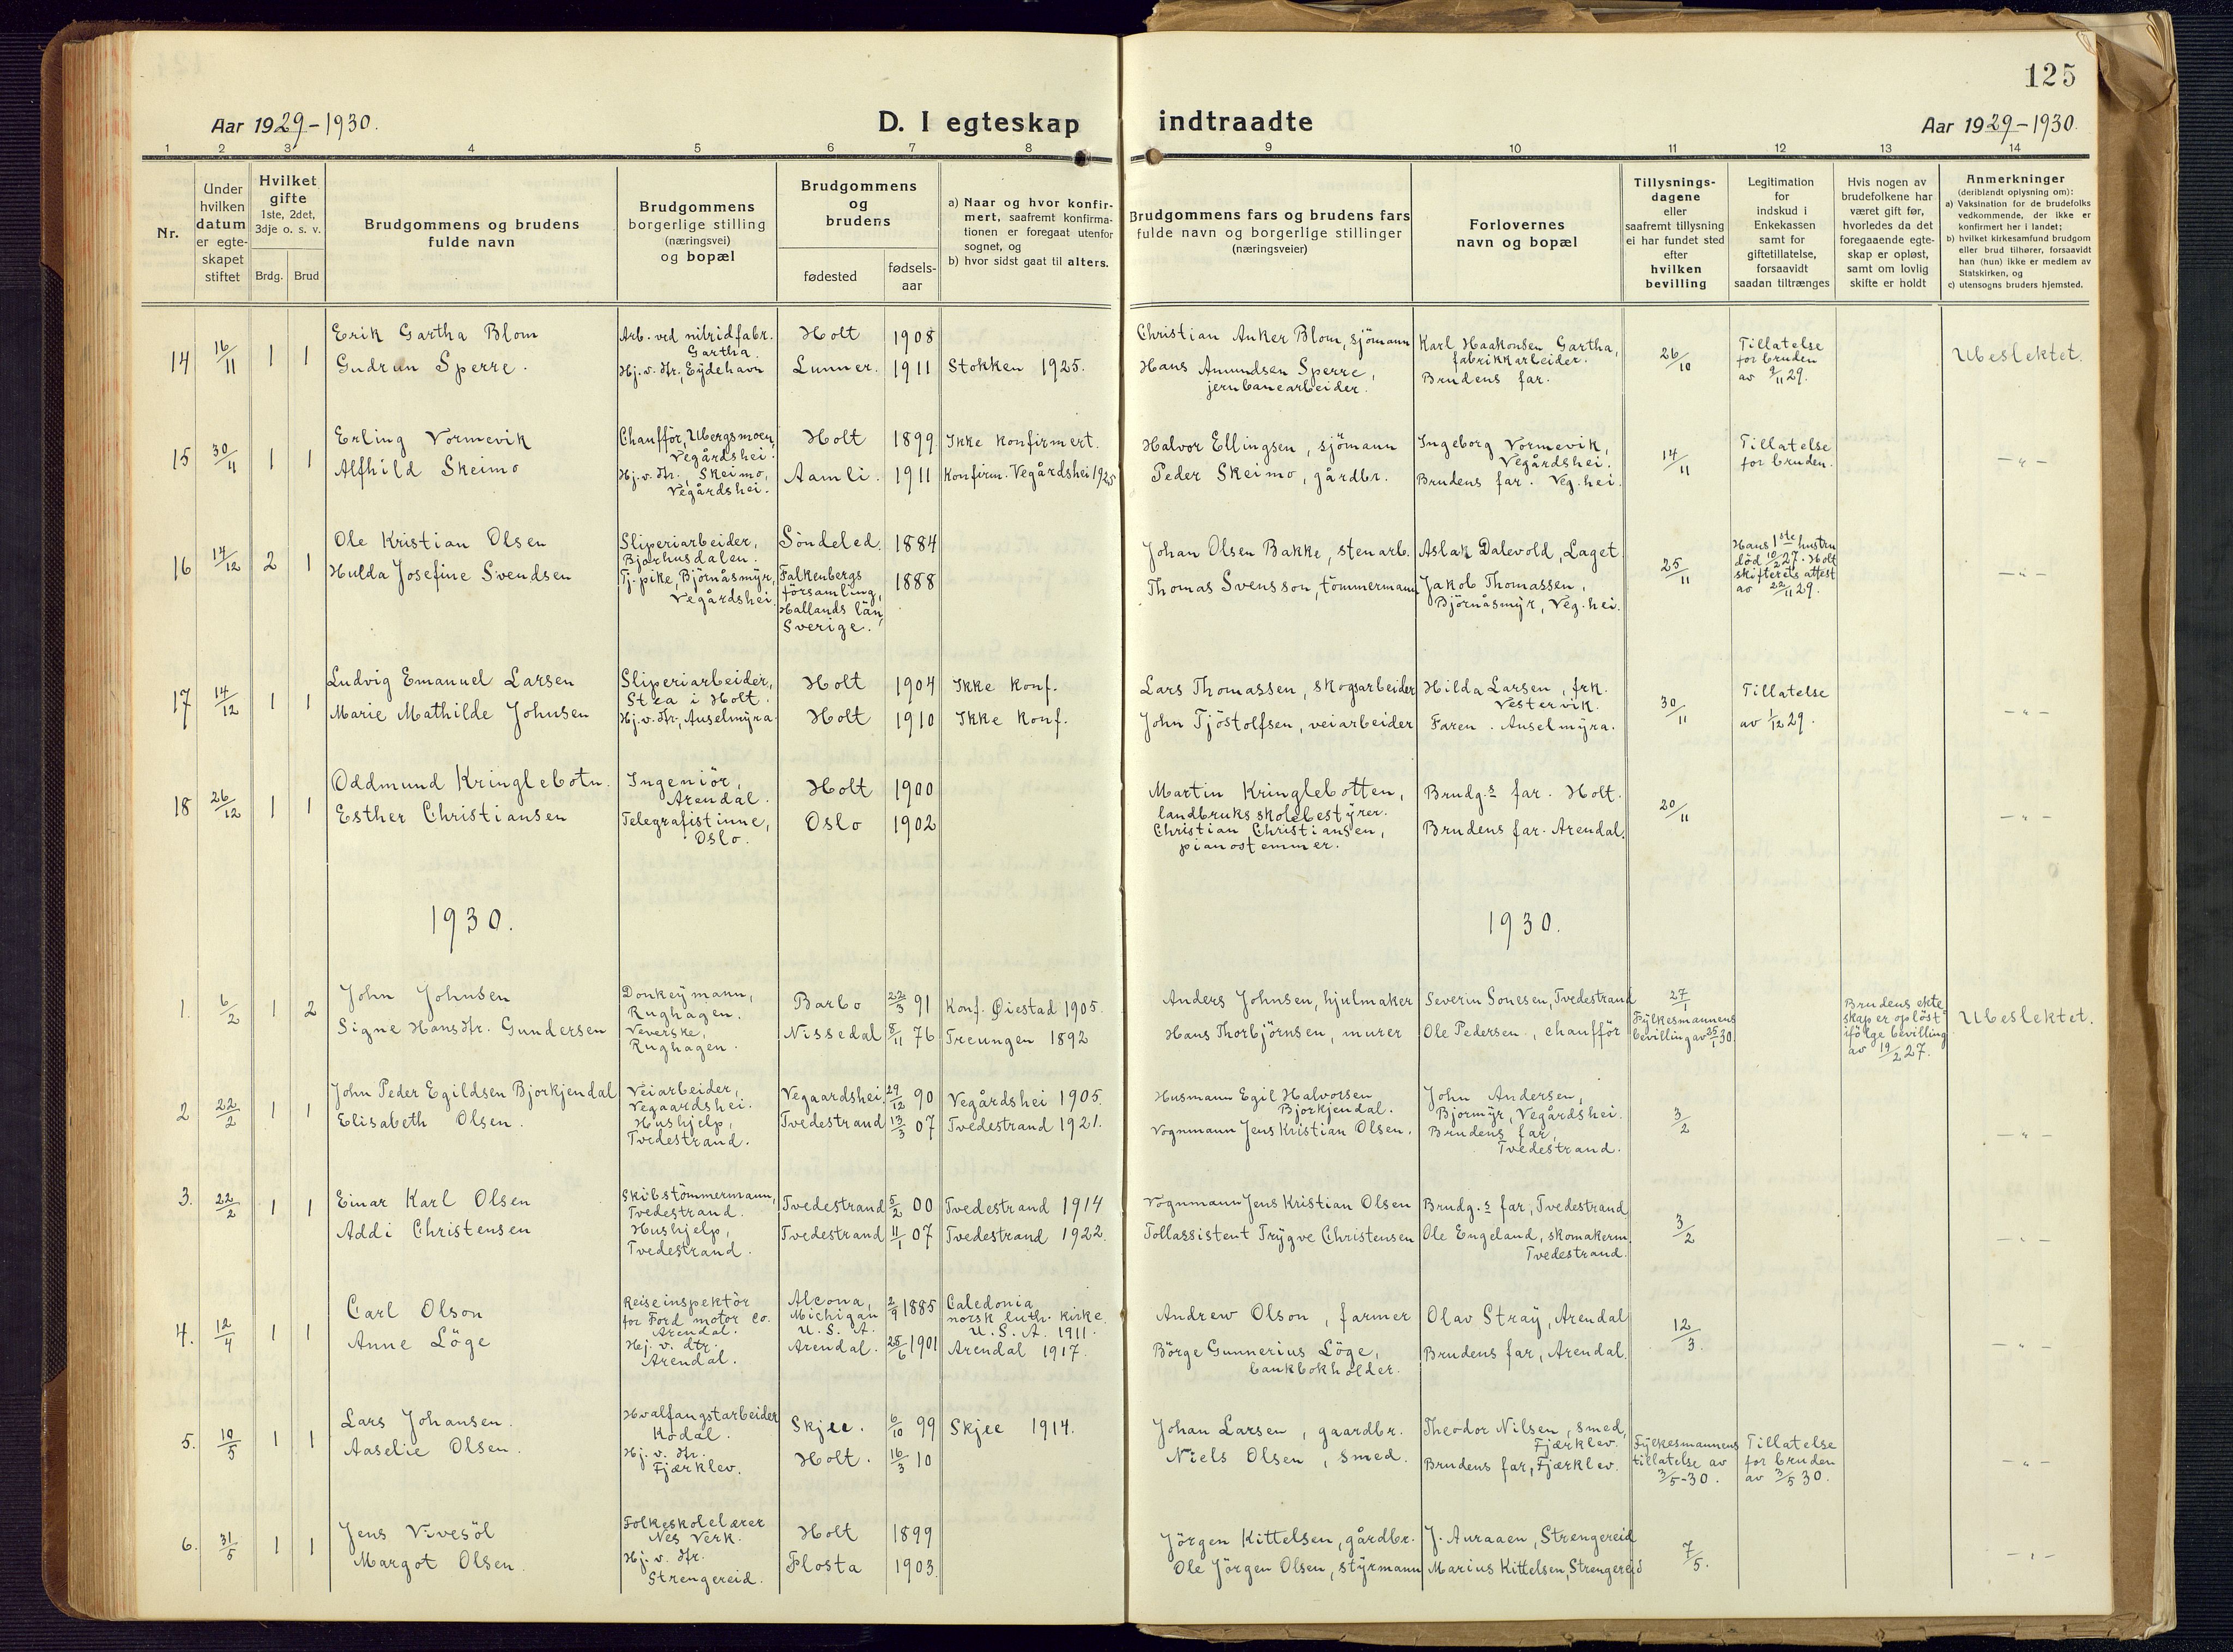 125
Aar 1929-1930.
D. I egteskap
indtraadte
Aar 1929-1930.
1 2 3 4 5 6 7 8 9 10 11 12 13 14
Nr.
Under
hvilken
datum
er egte-
skapet
stiftet
Hvilket
gifte
1ste, 2det,
3dje o. s. v.
Brdg. Brud
Brudgommens og brudens
fulde navn
Brudgommens
borgerlige stilling
(næringsvei)
og bopæl
Brudgommens
og
brudens
fødested
fødsels-
aar
a) Naar og hvor konfir-
mert, saafremt konfirma-
tionen er foregaat utenfor
sognet, og
b) hvor sidst gaat til alters.
Brudgommens fars og brudens fars
fulde navn og borgerlige stillinger
(næringsveier)
Forlovernes
navn og bopæl
Tillysnings-
dagene
eller
saafremt tillysning
ei har fundet sted
efter
hvilken
bevilling
Legitimation
for
indskud i
Enkekassen
samt for
giftetillatelse,
forsaavidt
saadan tiltrænges
Hvis nogen av
brudefolkene har
været gift før,
hvorledes da det
foregaaende egte-
skap er opløst,
samt om lovlig
skifte er holdt
Anmerkninger
(deriblandt oplysning om):
a) Vaksination for de brudefolks
vedkommende, der ikke er
konfirmert her i landet;
b) hvilket kirkesamfund brudgom
eller brud tilhører, forsaavidt
han (hun) ikke er medlem av
Statskirken, og
c) utensogns bruders hjemsted.
14 16/11 1 1
Erik Gartha Blom
Gudrun Sperre.
Arb. ved nitridfabr.
Gartha.
Hj. v. dtr., Eydehavn
Holt 1908
Lunner. 1911 Stokken 1925.
Christian Anker Blom, sjömann
Hans Amundsen Sperre,
jernbanearbeider.
Karl Haakonsen Gartha,
fabrikkarbeider.
Brudens far.
26/10
Tillatelse
for bruden
av 9/11 29.
Ubeslektet.
15 30/11 1 1
Erling Vormevik
Alfhild Skeimo
Chauffør, Ubergsmoen,
Vegårdshei.
Hj. v. dtr., Skeimo,
Vegårdshei.
Holt 1899 Ikke konfirmert.
Aamli. 1911 Konfirm. Vegårdshei 1925
Halvor Ellingsen, sjömann
Peder Skeimo, gårdbr.
Ingeborg Vormevik,
Vegårdshei.
Brudens far. Veg.hei.
14/11
Tillatelse
for bruden.
— " —
16 14/12 2 1
Ole Kristian Olsen
Hulda Josefine Svendsen
Sliperiarbeider,
Bjorhusdalen.
Tj. pike, Björnåsmyr,
Vegårdshei.
Söndeled. 1884
Falkenbergs
församling,
Hallands län,
Sverige.
1888
Johan Olsen Bakke, stenarb.
Thomas Svensson, tömmermann
Aslak Dalevold, Laget
Jakob Thomassen,
Björnåsmyr, Veg.hei.
25/11
Hans 1ste hustru
död 10/2 27. Holt
skifterets attest
av 22/11 29.
— " —
17 14/12 1 1
Ludvig Emanuel Larsen
Marie Mathilde Johnsen
Sliperiarbeider,
Stea i Holt.
Hj. v. dtr., Anselmyra
Holt 1904 Ikke konf.
Holt 1910 Ikke konf.
Lars Thomassen, skogsarbeider
John Tjöstolfsen, veiarbeider
Hilda Larsen, frk.
Vestervik.
Faren. Anselmyra.
30/11
Tillatelse
av 1/12 29.
— " —
18 26/12 1 1
Oddmund Kringlebotn.
Esther Christiansen
Ingeniör,
Arendal.
Telegrafistinne,
Oslo.
Holt 1900
Oslo 1902
Martin Kringlebotten,
landbruksskolebestyrer.
Christian Christiansen,
pianostemmer.
Brudg.s far. Holt.
Brudens far. Arendal.
20/11
— " —
1930.
1930.
1. 6/2 1 2
John Johnsen
Signe Hansdtr. Gundersen
Donkeymann,
Rughagen.
Veverske,
Rughagen.
Barbo 22/3 91 Konf. Øiestad 1905.
Nissedal 8/11 76 Treungen 1892
Anders Johnsen, hjulmaker
Hans Thorbjörnsen, murer
Severin Sonesen, Tvedestrand
Ole Pedersen, chaufför
27/1
Fylkesmannens
bevilling av 25/1 30.
Brudens ekte
skap er oplöst
ifölge bevilling
av 19/2 27.
Ubeslektet.
2 22/2 1 1
John Peder Egildsen Bjorkjendal
Elisabeth Olsen.
Veiarbeider,
Vegaardshei.
Hushjelp,
Tvedestrand.
Vegaardshei 29/12 90 Vegårdshei 1905.
Tvedestrand 13/3 07 Tvedestrand 1921.
Husmann Egil Halvorsen
Bjorkjendal.
Vognmann Jens Kristian Olsen.
John Andersen,
Bjormyr, Vegårdshei.
Brudens far,
Tvedestrand.
3/2
— " —
3. 22/2 1 1
Einar Karl Olsen
Addi Christensen
Skibstömmermann,
Tvedestrand.
Hushjelp,
Tvedestrand.
Tvedestrand 5/2 00 Tvedestrand 1914
Tvedestrand 11/1 07 Tvedestrand 1922.
Vognmann Jens Kristian Olsen
Tollassistent Trygve Christensen
Brudg.s far, Tvedestrand
Ole Engeland, skomakerm.
Tvedestrand.
3/2
— " —
4. 12/4 1 1
Carl Olson
Anne Löge
Reiseinspektör
for Ford motor co.
Arendal.
Hj. v. dtr.
Arendal.
Alcona,
Michigan
U. S. A.
2/9 1885
Caledonia
norsk luth. kirke.
U. S. A. 1911.
Arendal. 25/6 1901 Arendal 1917.
Andrew Olson, farmer
Börge Gunnerius Löge,
bankbokholder.
Olav Stray, Arendal
Brudens far, Arendal.
12/3.
— " —
5. 10/5 1 1
Lars Johansen.
Aaselie Olsen.
Hvalfangstarbeider
Kodal.
Hj. v. dtr.
Fjærklev.
Skjee. 6/10 99 Skjee 1914.
Holt. 16/3 10
Johan Larsen, gaardbr.
Niels Olsen, smed.
Theodor Nilsen, smed,
Fjærklev.
Brudens far, Fjærklev.
Fylkesmannens
tillatelse av
3/5-30.
Tillatelse
for bruden
av 3/5 30.
— " —
6. 31/5 1 1
Jens Vivesöl
Margot Olsen.
Folkeskolelærer
Nes Verk.
Hj. v. dtr.
Strengereid.
Holt 1899
Flosta 1903.
Jörgen Kittelsen, gårdbr.
Ole Jörgen Olsen, styrmann
J. Auraaen, Strengereid
Marius Kittelsen, Strengereid
7/5.
— " —